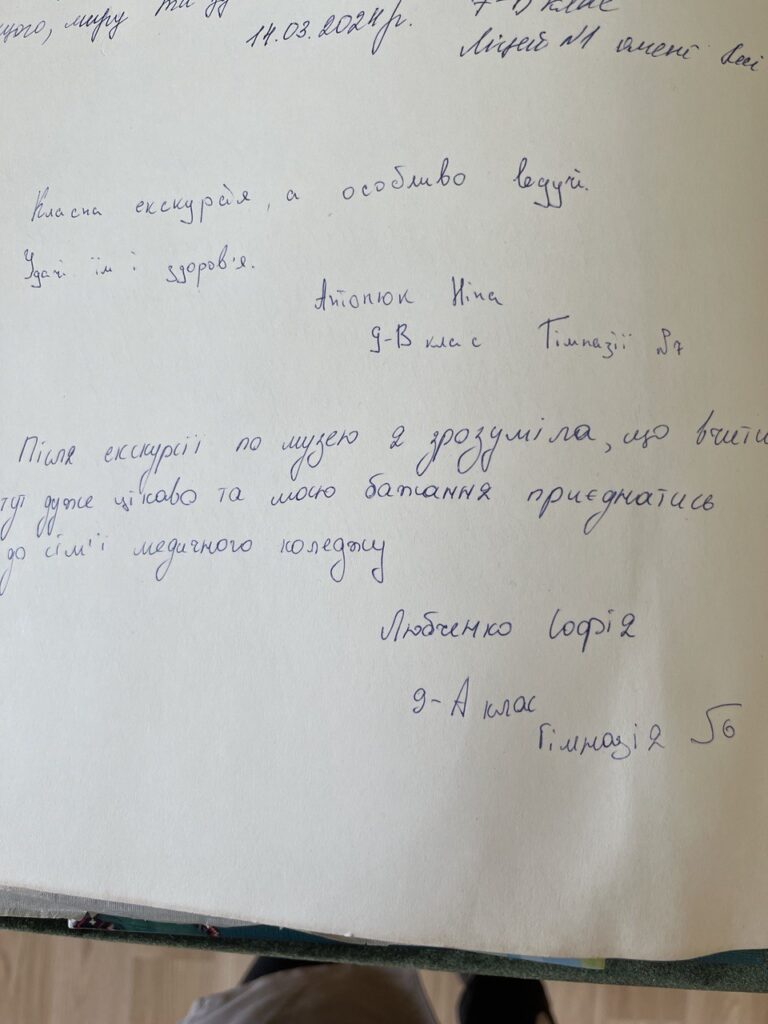 щого, миру та
7-В клас
14.03.2024 р.
Ліцей №1 імені
Класна екскурсія, а особливо ведучі.
Удачі їм і здоров'я.
Антонюк Ніна
9-В клас Гімназії №7
Після екскурсії по музею я зрозуміла, що вчити
тут дуже цікаво та моєю бажання приєднатись
до сім'ї медичного коледжу
Любченко Софія
9-А клас
Гімназія №6